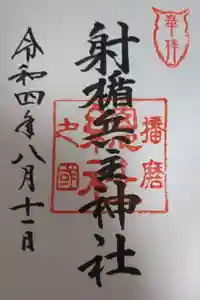 奉拝
射楯兵主神社
播磨
之國
總社
令和四年八月十一日